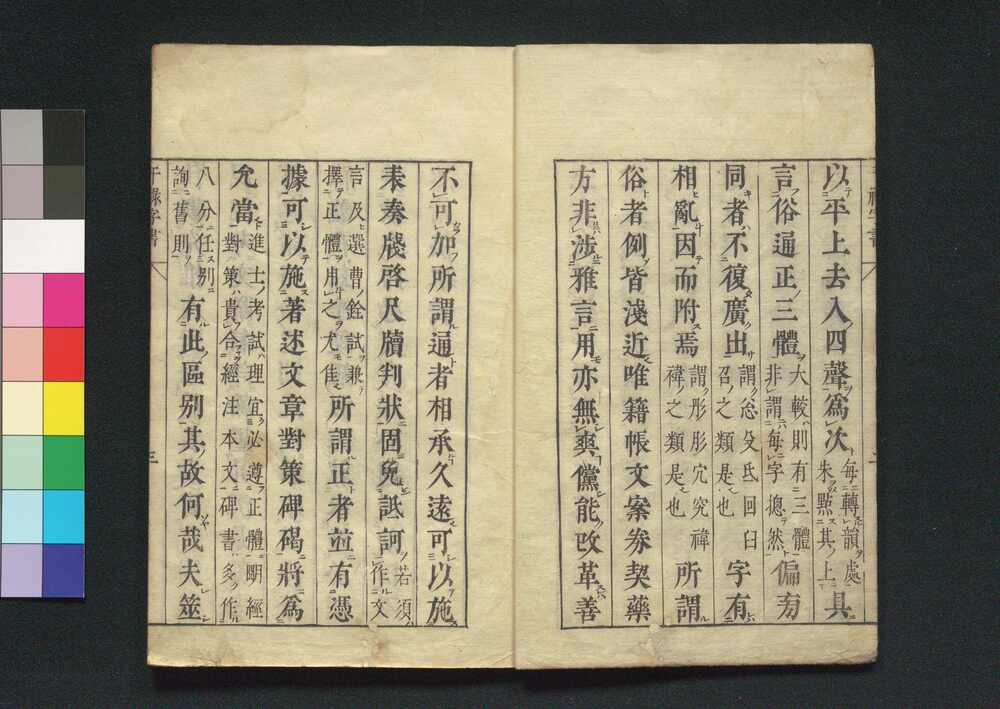 以平上去入四聲爲次每轉韻處朱點其上具
言俗通正三體大較則有三體非謂每字摠然偏旁
同者不復廣出謂忩殳氐回臼召之類是也字有
相亂因而附焉謂彤肜宂究禕褘之類是也所謂
俗者例皆淺近唯籍帳文案券契藥
方非涉雅言用亦無爽儻能改革善
不可加所謂通者相承久遠可以施
表奏牋啓尺牘判狀固免詆訶若須作文
言及選曹銓試兼擇正體用之尤佳所謂正者並有憑
據可以施著述文章對策碑碣將爲
允當進士考試理宜必遵正體明經對策貴合經注本文碑書多作
八分任別詢舊則有此區別其故何哉夫筮
干祿字書
三